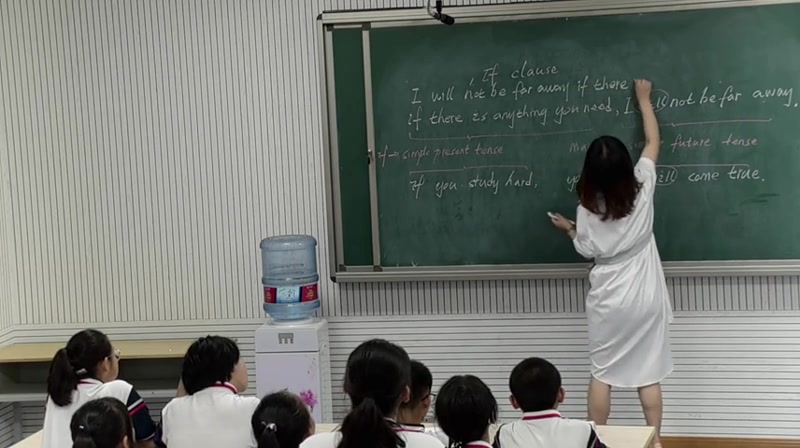 If clause
I will not be far away if there
if there is anything you need, I will not be far away.
If → simple present tense ma future tense
If you study hard, will come true.